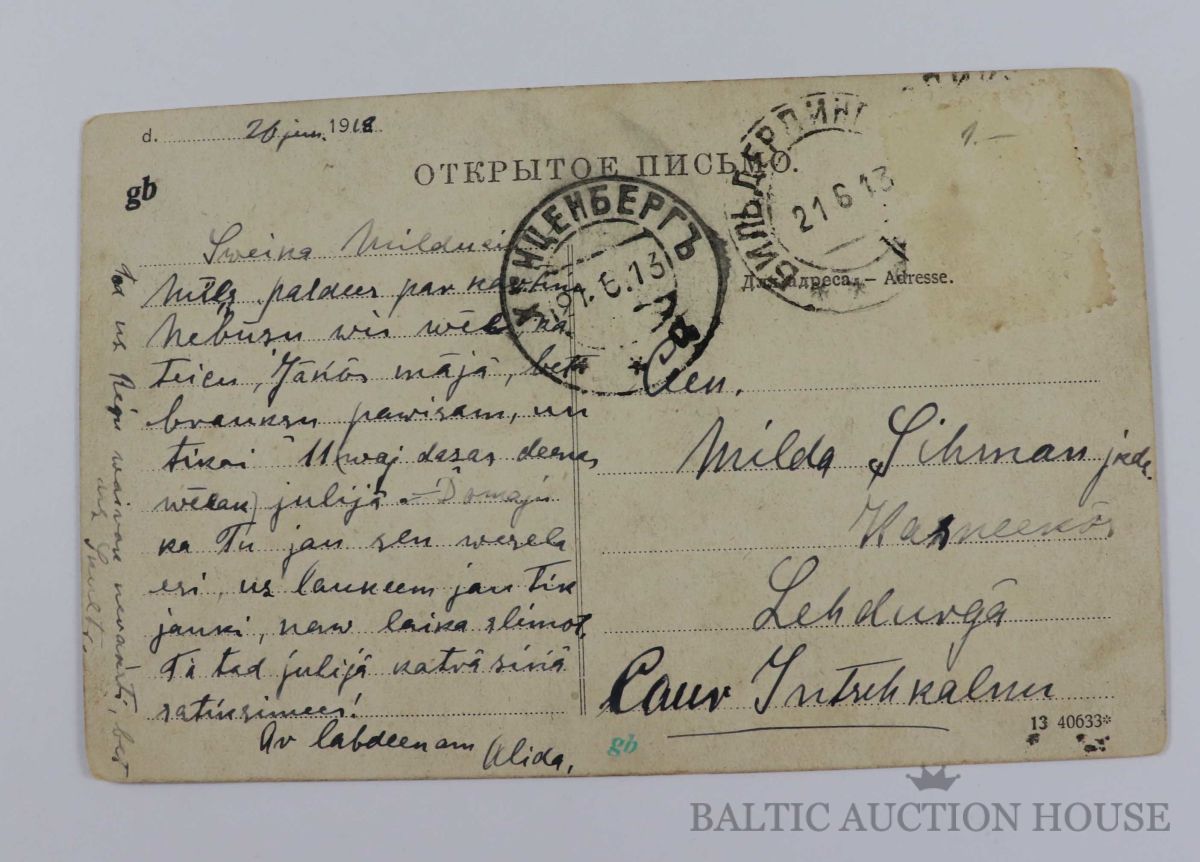 d. 20 jun. 1913
ОТКРЫТОЕ ПИСЬМО.
gb
1.—
ВИЛЬДЕРЛИНГ
21 6 13
ХИНЦЕНБЕРГЪ
21. 6. 13
Для адреса. — Adresse.
Sweika Milduci
Mīļš paldees par kartinu
Nebūšu wis wēl, kā
teicu, Jāņōs mājā, bet
braukšu pawisam, un
tikai 11 (waj dažas deenas
wēlāk) julijā. — Domaju
ka Tu jau sen wesela
esi, us laukeem jau tik
jauki, naw laika slimot.
Tā tad julijā katrā siņā
satiksimees!
Ar labdeenam Alida.
Tad us Rigu wairak neraksti, bet
us Smilt.
Cien.
Milda Sihman jkdze
Kasneekōs
Lehdurgā
Caur Intschkalnu
gb
13 40633*
BALTIC AUCTION HOUSE